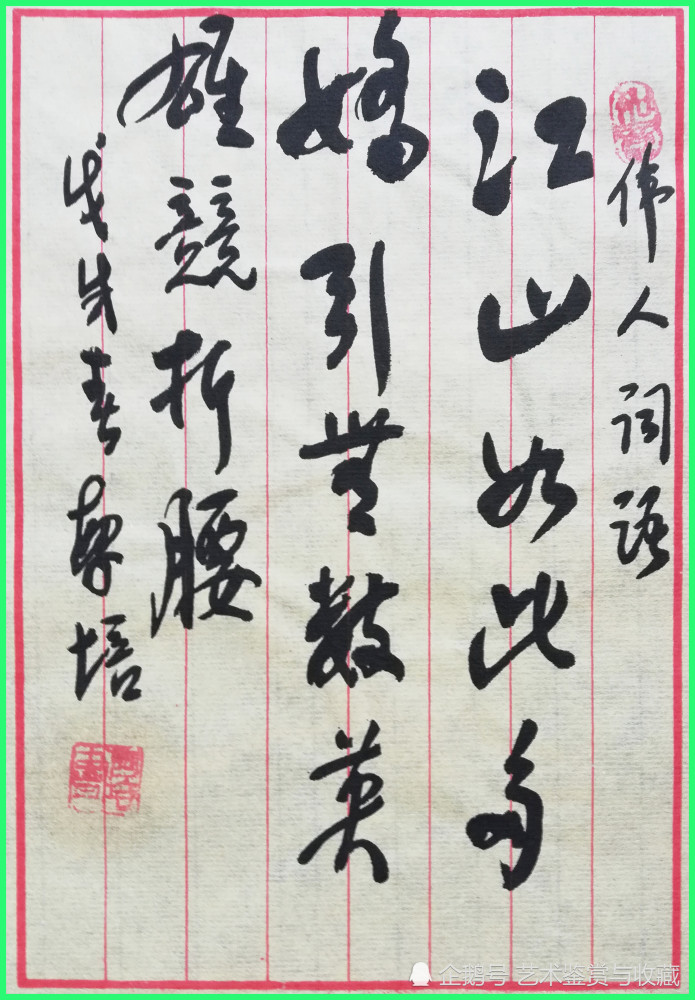 伟人词语
江山如此多
嬌引無數英
雄競折腰
戊戌春培
企鹅号 艺术鉴赏与收藏